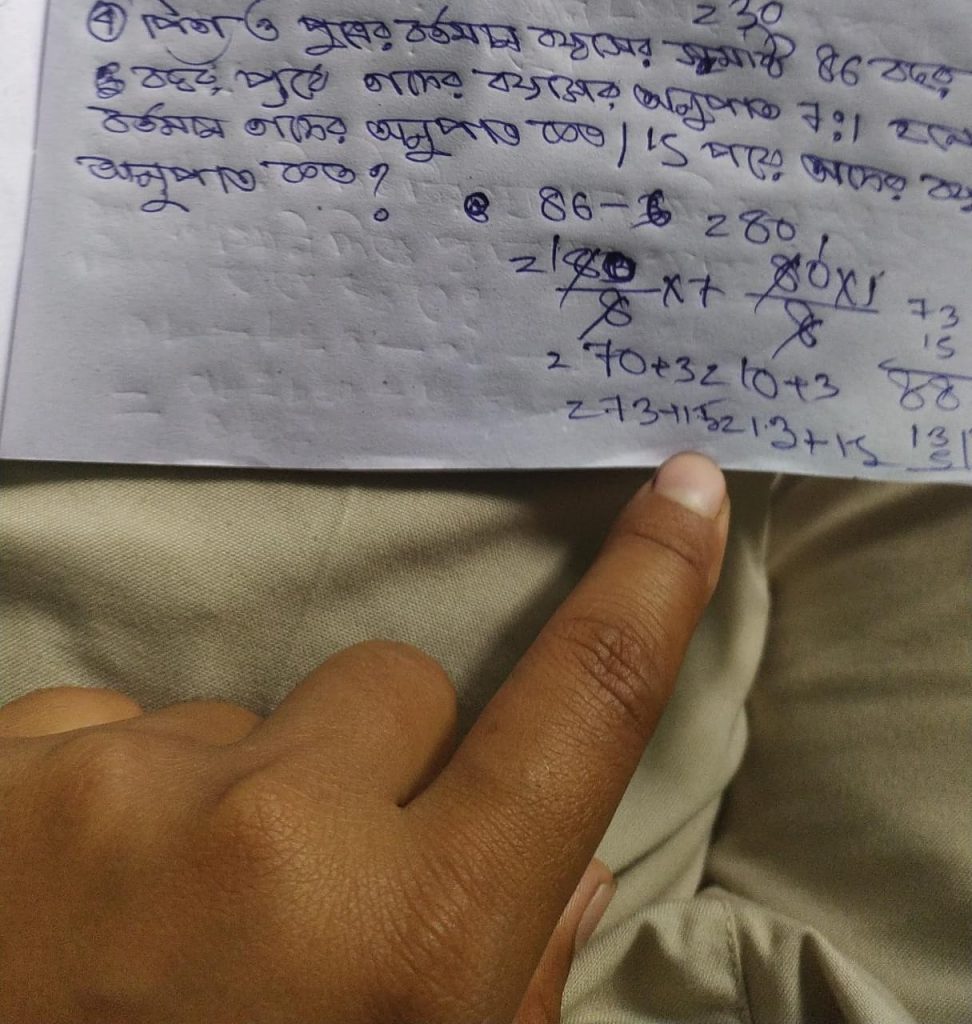 = 30
④ পিতা ও পুত্রের বর্তমান বয়সের সমষ্টি 86 বছর
বছর পূর্বে তাদের বয়সের অনুপাত 7:1 হলে
বর্তমান তাদের অনুপাত কত / 15 পরে তাদের
অনুপাত কত?
86 - 6 = 80
= 80/8 x 7 80x1/8
= 70+3 = 10+3
= 73+15 = 13+15
73
15
88
13